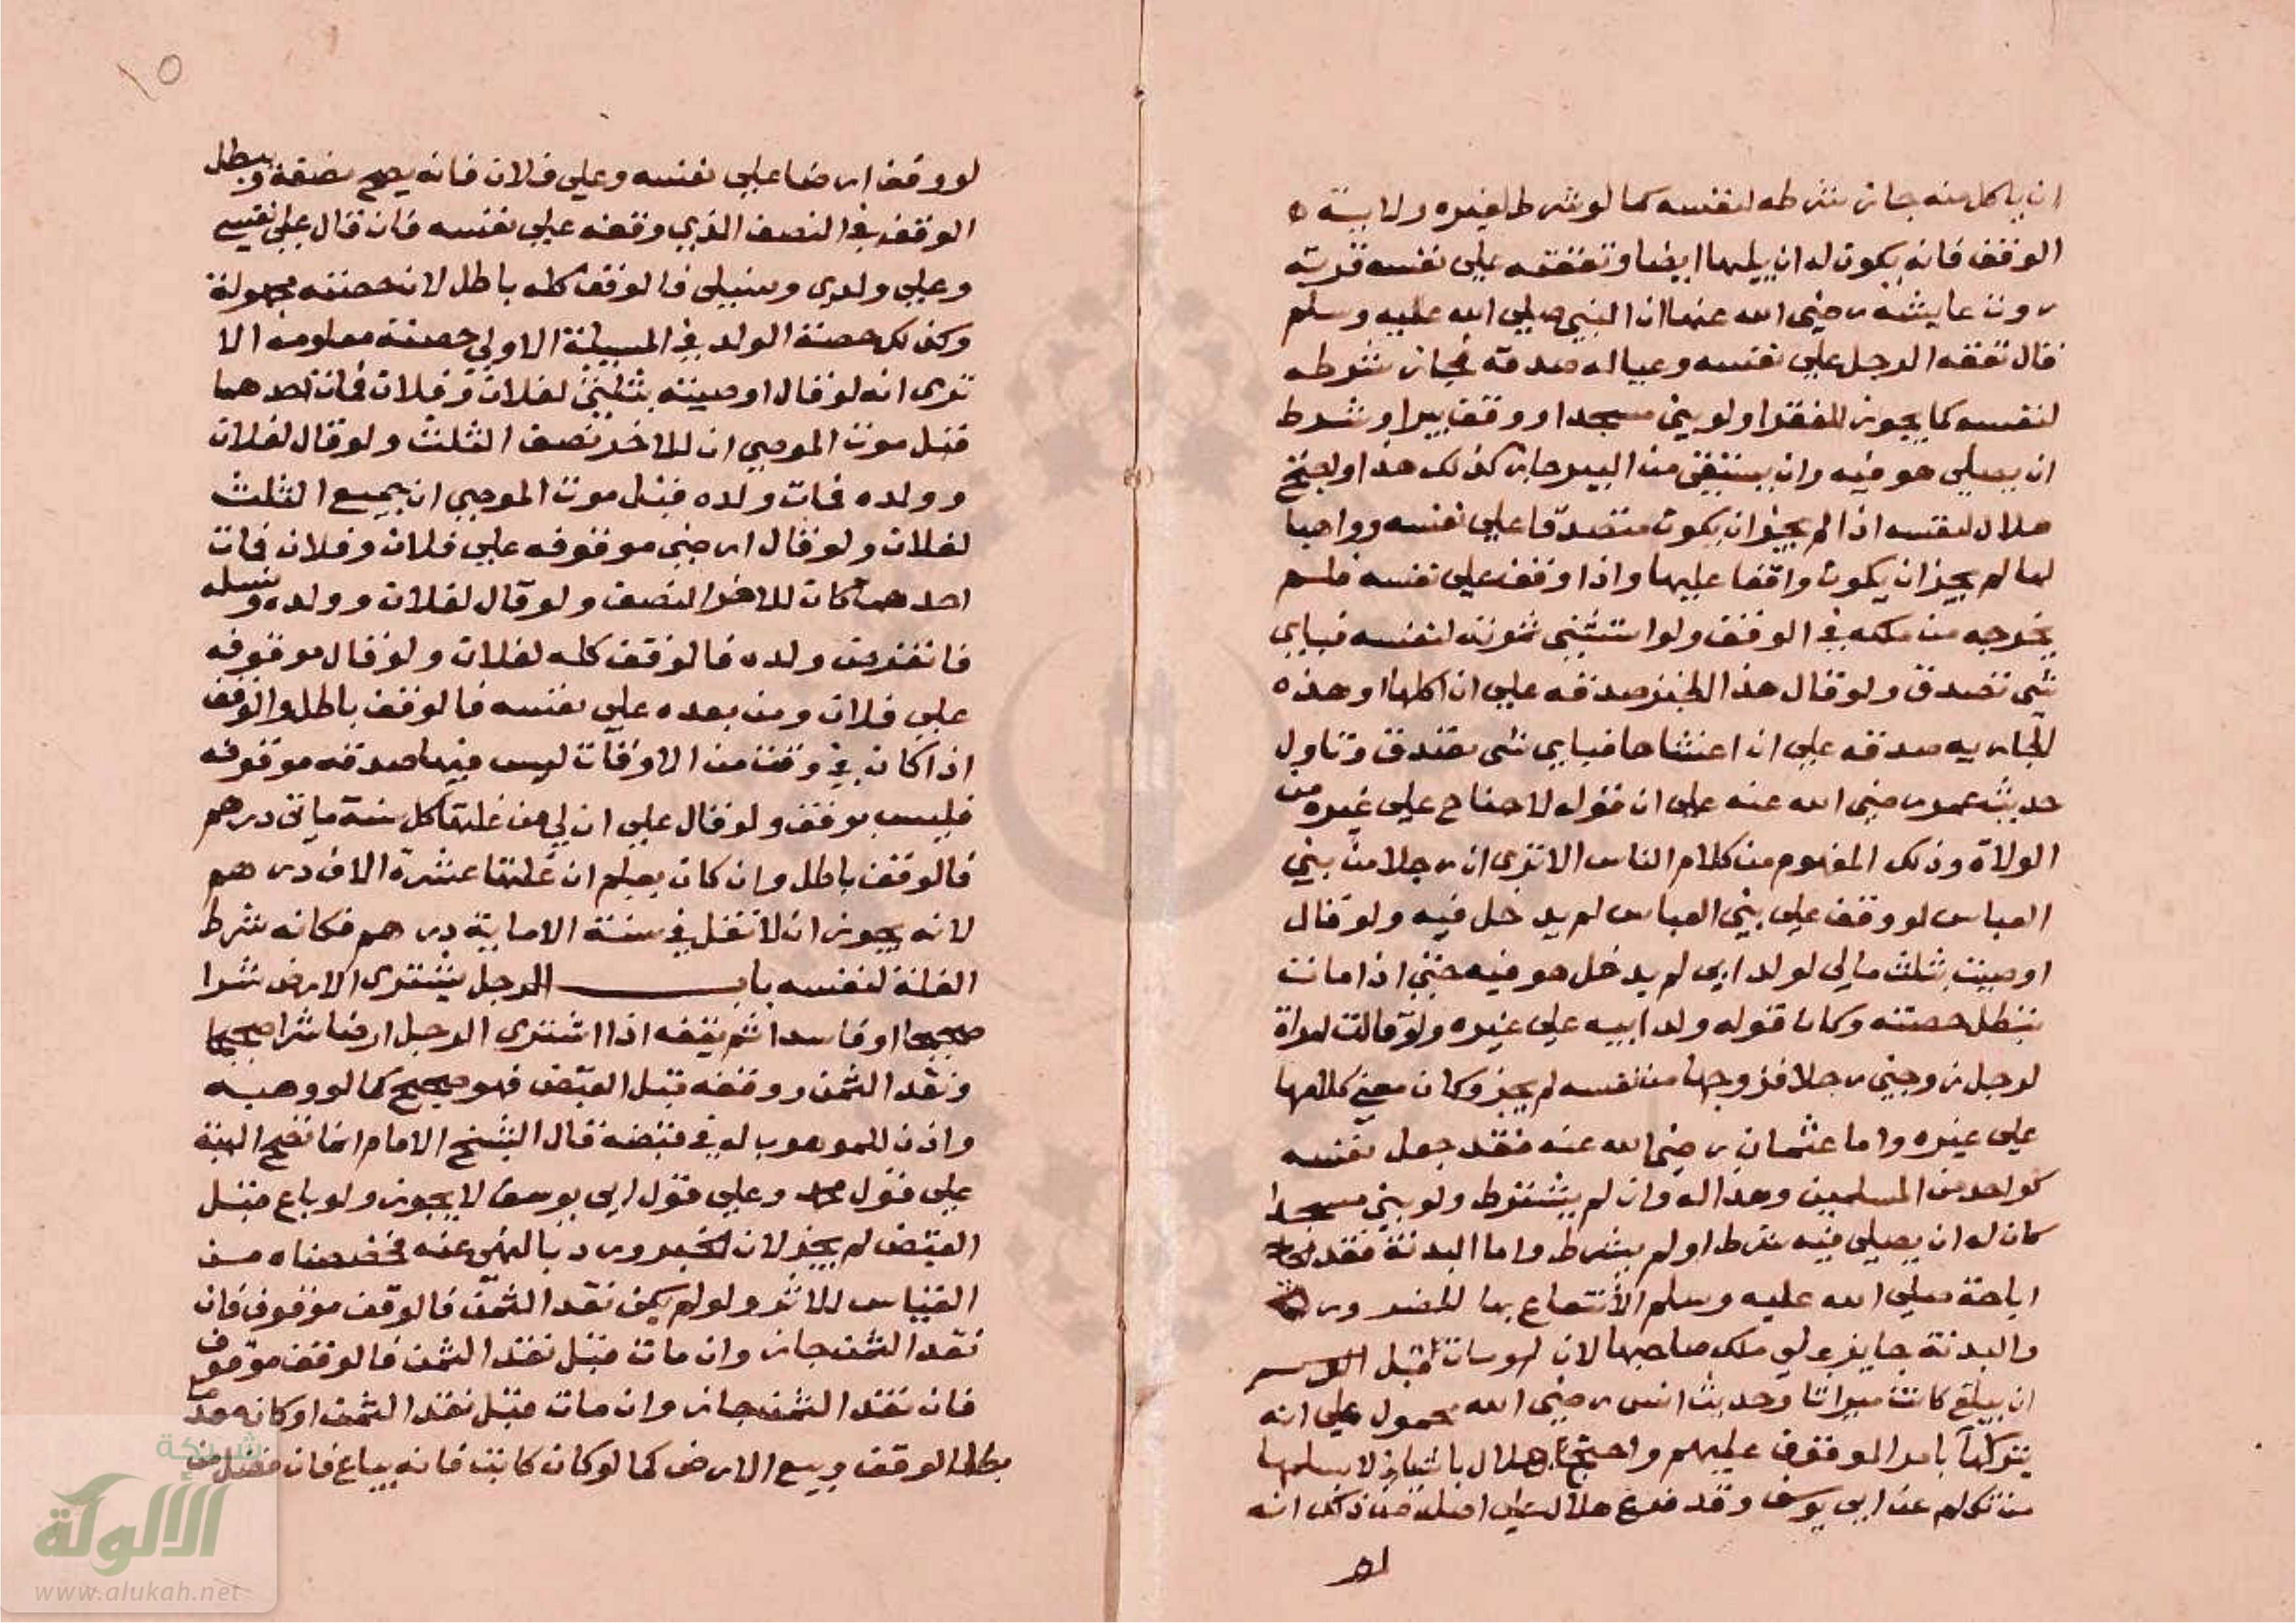 ان ياكل منه جاز شرطه لنفسه كما لو شرط لغيره ولاية
الوقف فانه يكون له ان يليها ايضا ونفقته على نفسه قربة
روت عايشة رضى الله عنها ان النبي صلى الله عليه وسلم
قال نفقه الرجل على نفسه وعياله صدقة فجاز شرطه
لنفسه كما يجوز للفقرا ولو بنى مسجدا او وقف بيرا وشرط
ان يصلي هو فيه وان يستقي من البير جاز كذلك هذا واحتج
هلال لنفسه اذا لم يجز ان يكون متصدقا على نفسه وواهبا
لها لم يجز ان يكون واقفا عليها واذا وقف على نفسه فلم
يخرجه من ملكه في الوقف ولو استثنى لنفسه فباي
شي تصدق ولو قال هذا الخبز صدقه علي ان اكلها وهذه
الجاريه صدقه على ان فباي شي تصدق وتاول
حديث عمر رضى الله عنه على ان قوله لا جناح على غيره من
الولاة وذلك المفهوم من كلام الناس الا ترى ان رجلا من بني
العباس لو وقف على بني العباس لم يدخل فيه ولو قال
اوصيت بثلث مالي لولد ابى لم يدخل هو فيه حتى اذا مات
تبطل حصته وكان قوله ولد ابيه على غيره ولو قالت امراة
لرجل زوجني رجلا فزوجها من نفسه لم يجز وكان معنى كلامها
على غيره واما عثمان رضى الله عنه فقد جعل نفسه
كواحد من المسلمين وهذا له وان لم يشترط ولو بنى مسجدا
كان له ان يصلي فيه شرط او لم يشرط واما البدنة فقد
اباحة صلى الله عليه وسلم الانتفاع بها للضرورة
والبدنة جايز ولي ملك صاحبها لان لو مات قبل
ان يبلغ كانت ميراثا وحديث انس رضى الله محمول على انه
بامر الموقوف عليهم واحتج هلال باشيا لا يسلمها
من تكلم عن ابى يوسف وقد فرع هلال على اصله من ذلك انه
لو
١٥
لو وقف ارضا على نفسه وعلى فلان فانه يصح نصفه ويبطل
الوقف في النصف الذي وقفه على نفسه فان قال على نفسي
وعلى ولدي ونسلي فالوقف كله باطل لان حصته مجهولة
وكذلك حصة الولد في المسيلة الاولى حصته معلومه الا
ترى انه لو قال اوصيت بثلثي لفلان وفلان فمات احدهما
قبل موت الموصي ان للاخر نصف الثلث ولو قال لفلان
وولده فمات ولده قبل موت الموصي ان جميع الثلث
لفلان ولو قال ارضي موقوفه على فلان وفلان فمات
احدهما كان للاخر النصف ولو قال لفلان وولده ونسله
فانقرض ولده فالوقف كله لفلان ولو قال موقوفه
على فلان ومن بعده على نفسه فالوقف باطل والوقف
اذا كان في وقت من الاوقات ليس فيها صدقه موقوفه
فليس بوقف ولو قال على ان لي من غلتها كل سنة مائتي درهم
فالوقف باطل وان كان يعلم ان غلتها عشرة الاف درهم
لانه يجوز ان لا تغل في سنة الا مايتي درهم فكانه شرط
الغلة لنفسه باب الرجل يشترى الارض شرا
صحيحا او فاسدا ثم يقفه اذا اشترى الرجل ارضا شرا صحيحا
ونقد الثمن ووقفه قبل القبض فهو صحيح كما لو وهبه
واذن للموهوب له في قبضه قال الشيخ الامام انما تصح الهبة
على قول محمد وعلى قول ابى يوسف لا يجوز ولو باع قبل
القبض لم يجز لان الخبر ورد بالنهي عنه فخصصناه من
القياس للاثر ولو لم يكن نقد الثمن فالوقف موقوف فان
نقد الثمن جاز وان مات قبل نقد الثمن فالوقف موقوف
فان نقد الثمن جاز وان مات قبل نقد الثمن او كانه
بطل الوقف وبيع الارض كما لو كان كانت فانه يباع فان فضل من
شبكة
الألوكة
www.alukah.net